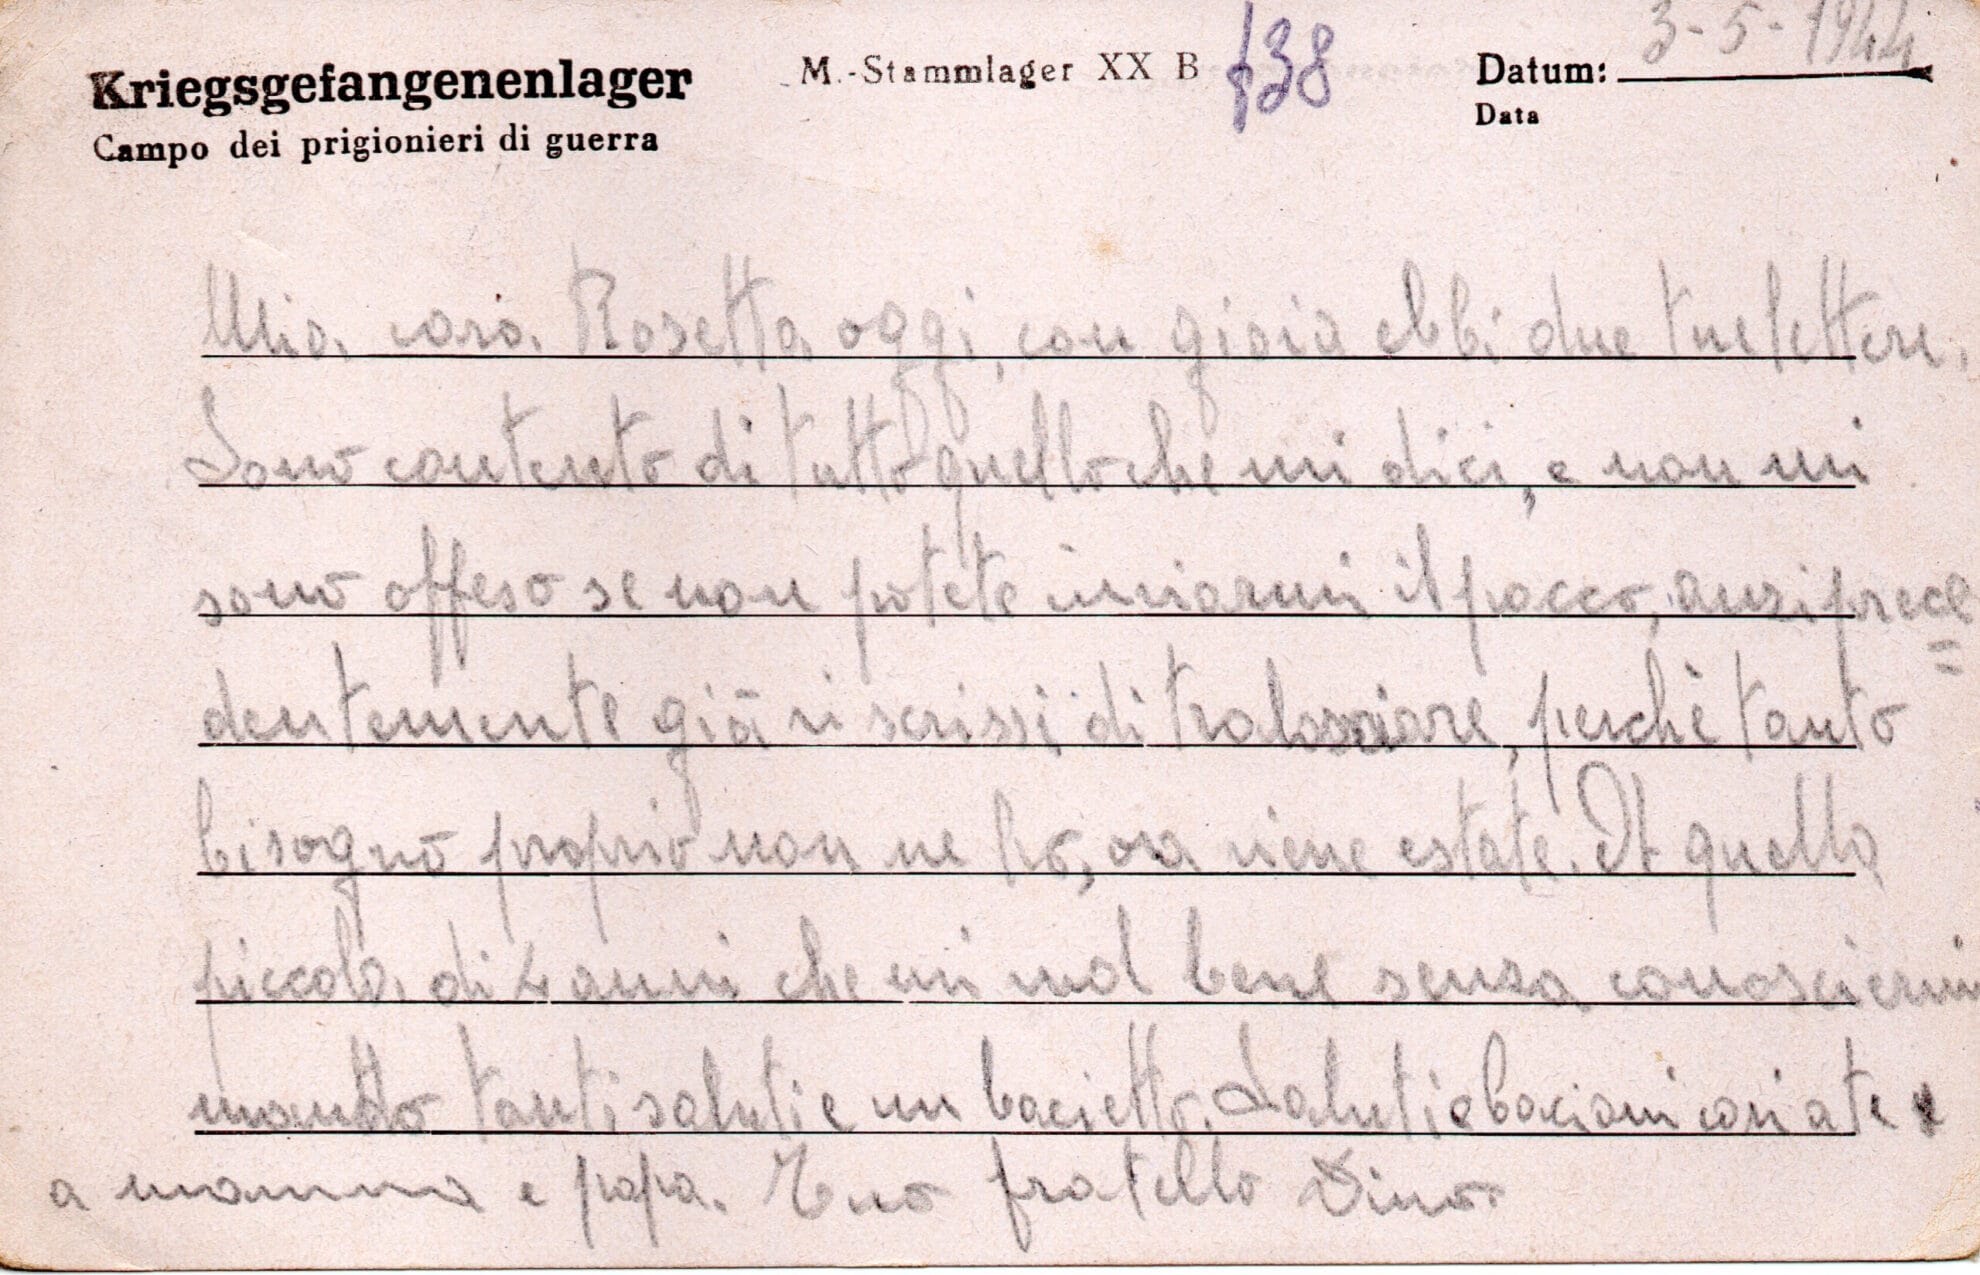 Kriegsgefangenenlager
Campo dei prigionieri di guerra
M.-Stammlager XX B
138
Datum: 3-5-1944
Data
Mia cara Rosetta oggi, con gioia ebbi due tue lettere.
Sono contento di tutto quello che mi dici, e non mi
sono offeso se non potete inviarmi il pacco, anzi prece=
dentemente già vi scrissi di tralassciare, perchè tanto
bisogno proprio non ne ho, ora viene estate. A quella
piccola di 4 anni che mi vol bene senza conosciermi
mando tanti saluti e un bacietto. Saluti e bacioni cari a te e
a mamma e papa. Tuo fratello Dino.